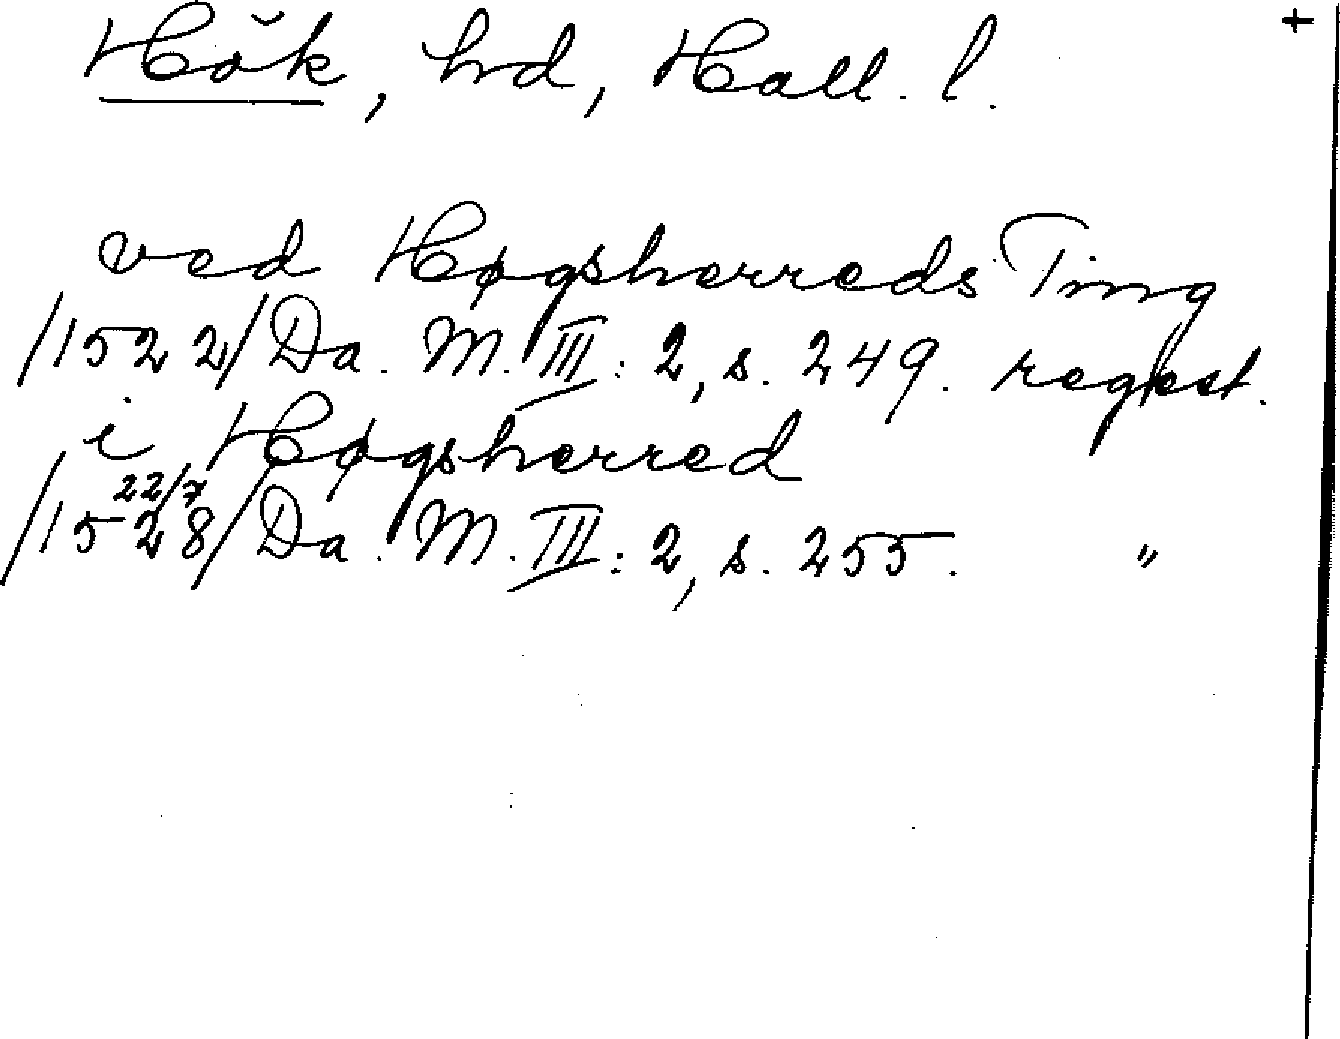 +
Hök, hd, Hall. l.
ved Høgsherreds Ting
/1522/ Da. M. III: 2, s. 249. regest.
i Høgsherred
22/7
/1528/ Da. M. III: 2, s. 255. "